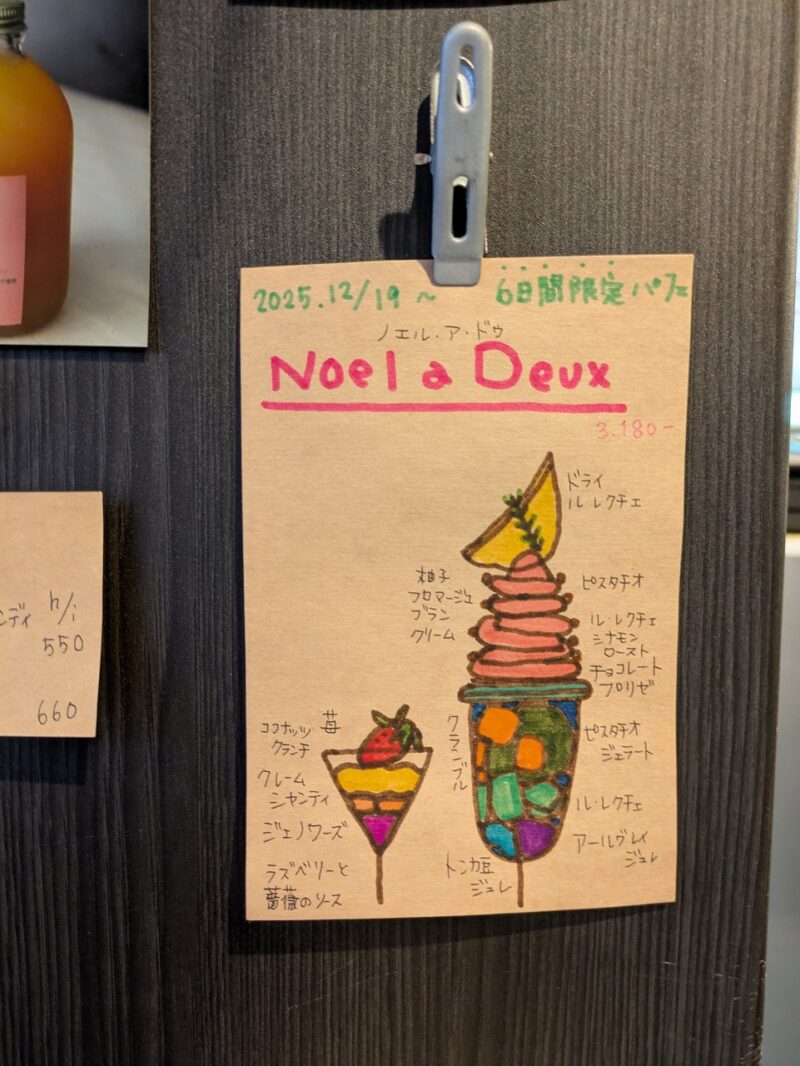 2025.12/19 ～ 6日間限定パフェ
ノエル・ア・ドゥ
Noel a Deux
3.180-
ドライ
ル・レクチェ
柚子
フロマージュ
ブラン
クリーム
ピスタチオ
ル・レクチェ
シナモン
ロースト
チョコレート
プロリゼ
クランブル
ピスタチオ
ジェラート
ル・レクチェ
アールグレイ
ジュレ
トンカ豆
ジュレ
苺
ココナッツ
クランチ
クレーム
シャンティ
ジェノワーズ
ラズベリーと
薔薇のソース
ンディ h/i
550
660